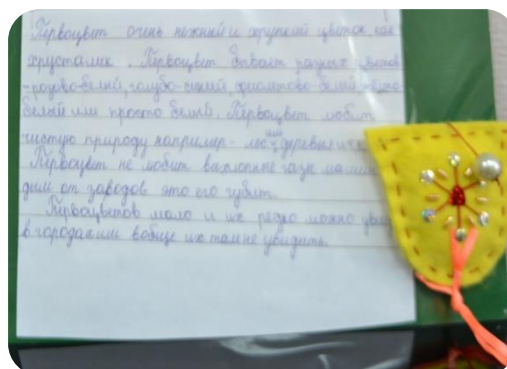 Первоцвет очень нежный и хрупкий цветок, как
хрусталик. Первоцвет бывает разных цветов
-розово-белый, голубо-синий, фиолетово-белый,
белый или просто белый. Первоцвет любит
чистую природу например- деревья и
Первоцвет не любит выхлопные газы машин
дым от заводов это его губит.
Первоцветов мало и их редко можно
в городах или вобще их там не увидить.